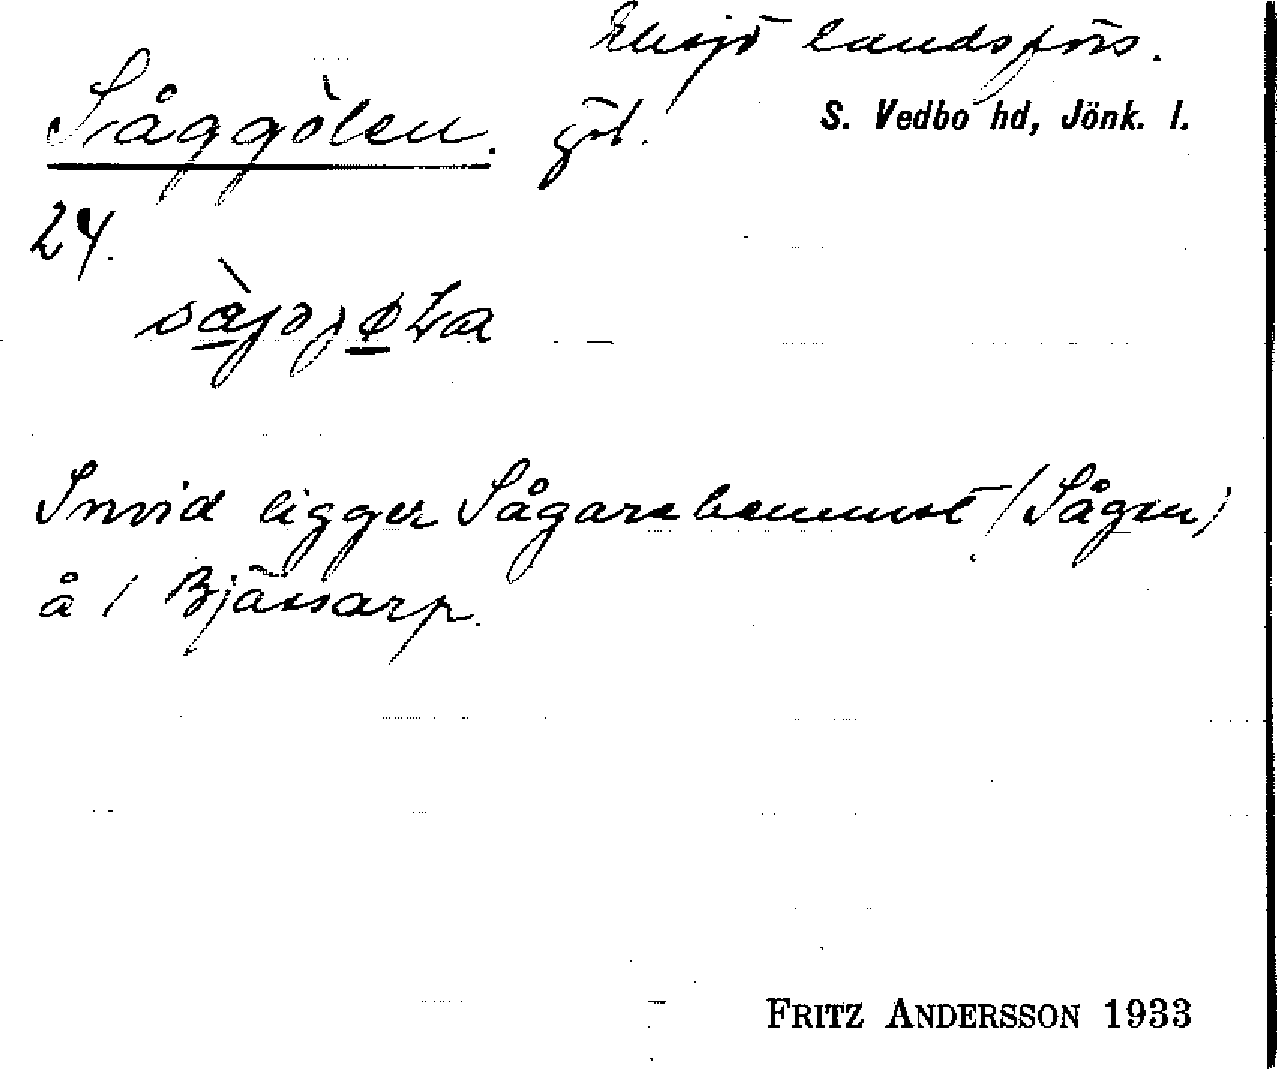 Eksjö landsförs.
Såggölen. göl.
S. Vedbo hd, Jönk. l.
24.
Invid ligger Sågarehemmet (Sågen)
å / Bjässarp.
FRITZ ANDERSSON 1933